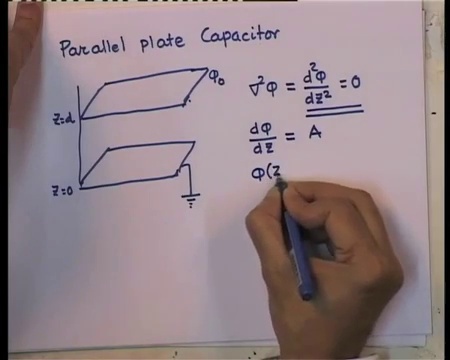 Parallel plate Capacitor
φ₀
z=d
z=0
∇²φ = d²φ/dz² = 0
dφ/dz = A
φ(z